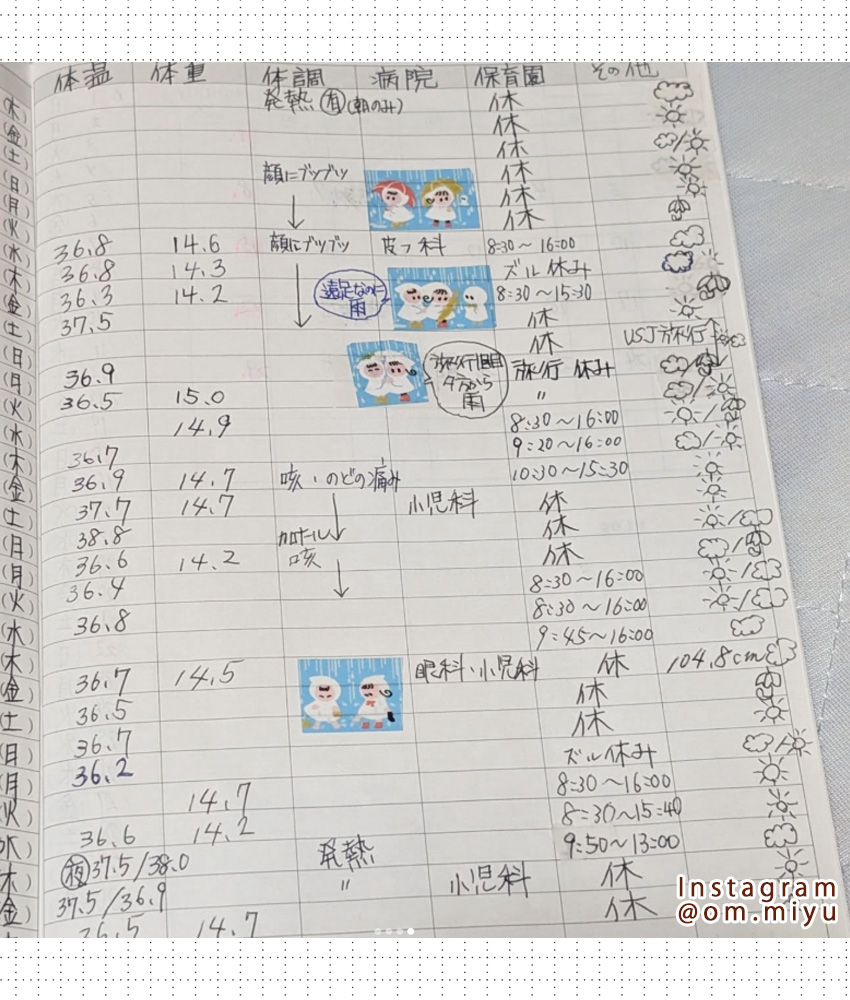 体温 体重 体調 病院 保育園 その他
(木) 発熱 有 (朝のみ) 休
(金) 休
(土) 休
(日) 顔にブツブツ 休
(月) 休
(火) 休
(水) 36.8 14.6 顔にブツブツ 皮フ科 8:30〜16:00
(木) 36.8 14.3 ズル休み
(金) 36.3 14.2 遠足なのに雨 8:30〜15:30
(土) 37.5 休
(日) 休 USJ旅行
(月) 36.9 旅行1日目 夕方から雨 旅行 休み
(火) 36.5 15.0 〃
(水) 14.9 8:30〜16:00
(木) 36.7 9:20〜16:00
(金) 36.9 14.7 咳・のどの痛み 10:30〜15:30
(土) 37.7 14.7 小児科 休
(日) 38.8 カロナール 休
(月) 36.6 14.2 咳 休
(火) 36.4 8:30〜16:00
(水) 36.8 8:30〜16:00
(木) 9:45〜16:00
(金) 36.7 14.5 眼科・小児科 休 104.8cm
(土) 36.5 休
(日) 36.7 休
(月) 36.2 ズル休み
(火) 14.7 8:30〜16:00
(水) 36.6 14.2 8:30〜15:40
(木) 夜 37.5/38.0 発熱 9:50〜13:00
(金) 37.5/36.9 〃 小児科 休
36.5 14.7 休
Instagram
@om.miyu